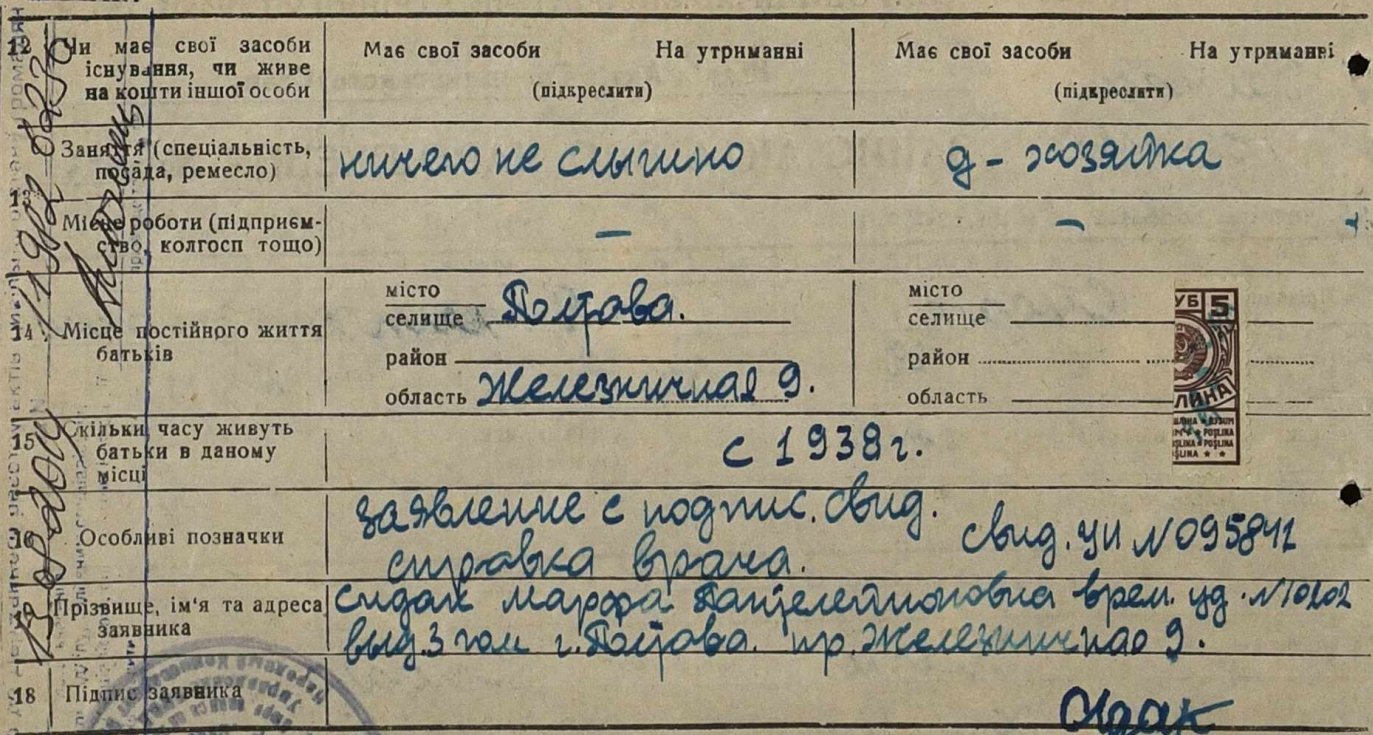 12 Чи має свої засоби існування, чи живе на кошти іншої особи
Має свої засоби На утриманні
(підкреслити)
Має свої засоби На утриманні
(підкреслити)
13 Заняття (спеціальність, посада, ремесло)
ничего не слышно
д - хозяйка
Місце роботи (підприєм-
ство, колгосп тощо)
—
—
14 Місце постійного життя батьків
місто
селище Полтава.
район
область Железничная 9.
місто
селище
район
область
УБ 5
ЛИНА
15 Скільки часу живуть батьки в даному місці
с 1938 г.
16 Особливі позначки
заявление с подпис. свид.
справка врача.
свид. УИ №095841
17 Прізвище, ім'я та адреса заявника
Сидак Марфа Пантелеймоновна врем. уд. №10202
выд. 3 гом г. Полтава. пр. Железничная 9.
18 Підпис заявника
Сидак